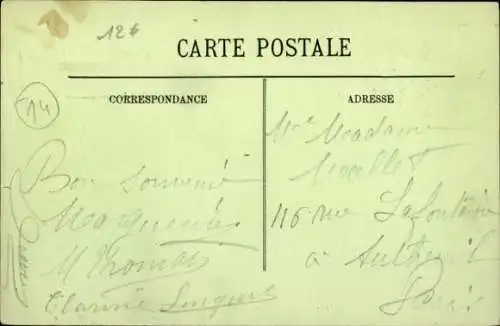 12 €
CARTE POSTALE
14
CORRESPONDANCE
Bon Souvenir
Marguerites
M Thomas
Clarine
ADRESSE
Madame
116 rue Lafontaine
à Auteuil
Paris